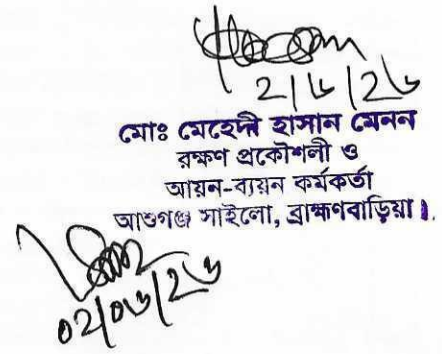 ২/৬/২৬
মোঃ মেহেদী হাসান মেনন
রক্ষণ প্রকৌশলী ও
আয়ন-ব্যয়ন কর্মকর্তা
আশুগঞ্জ সাইলো, ব্রাহ্মণবাড়িয়া।
০২/০৬/২৬